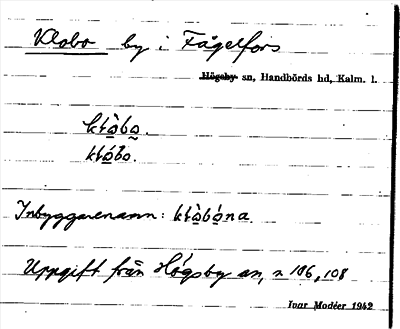 Klobo by i Fågelfors
Högsby sn, Handbörds hd, Kalm. l.
kłò̱bo̱.
kłó̱bo.
Inbyggarenamn: kłò̱bó̱na
Uppgift från Högsby sn, n 106, 108
Ivar Modéer 1942